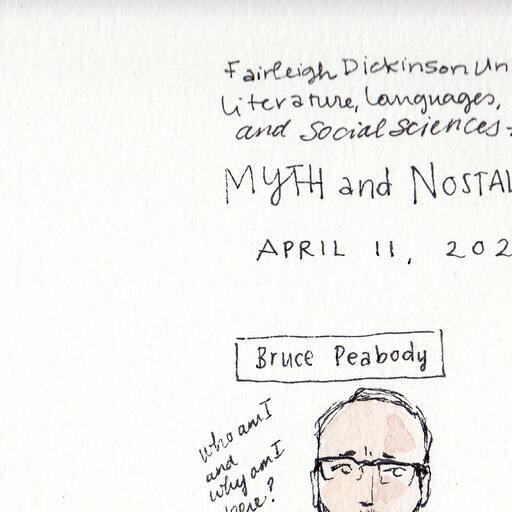 Fairleigh Dickinson Un
Literature, Languages,
and Social Sciences
MYTH and NOSTAL
APRIL 11, 202
Bruce Peabody
who am I
and
why am I
here?